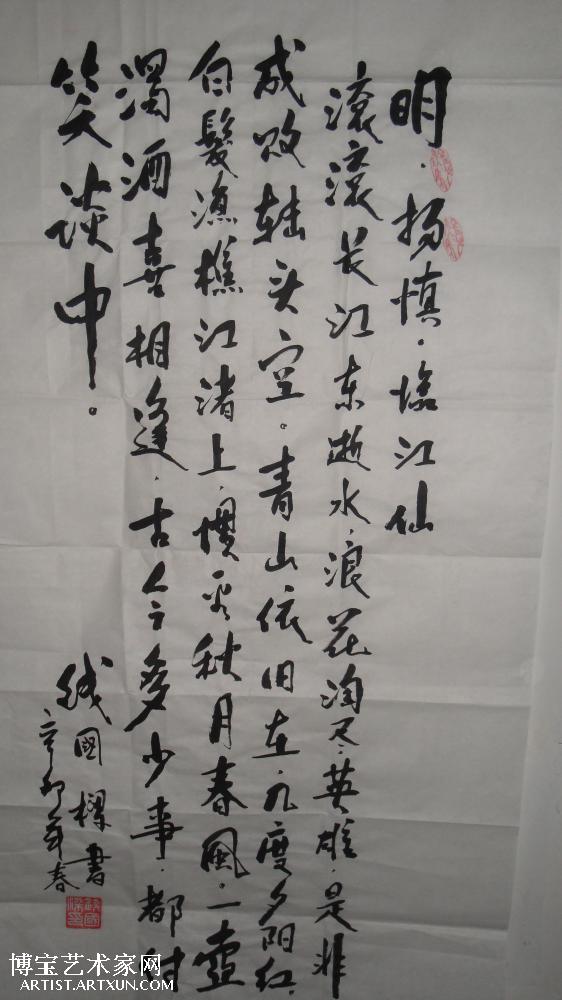 明·杨慎·临江仙
滚滚长江东逝水.浪花淘尽.英雄.是非
成败转头空。青山依旧在.几度夕阳红.
白髮渔樵江渚上.惯看秋月春風.一壶
濁酒喜相逢.古今多少事.都付
笑谈中。
钱國樑書
辛卯年春
博宝艺术家网
ARTIST.ARTXUN.COM